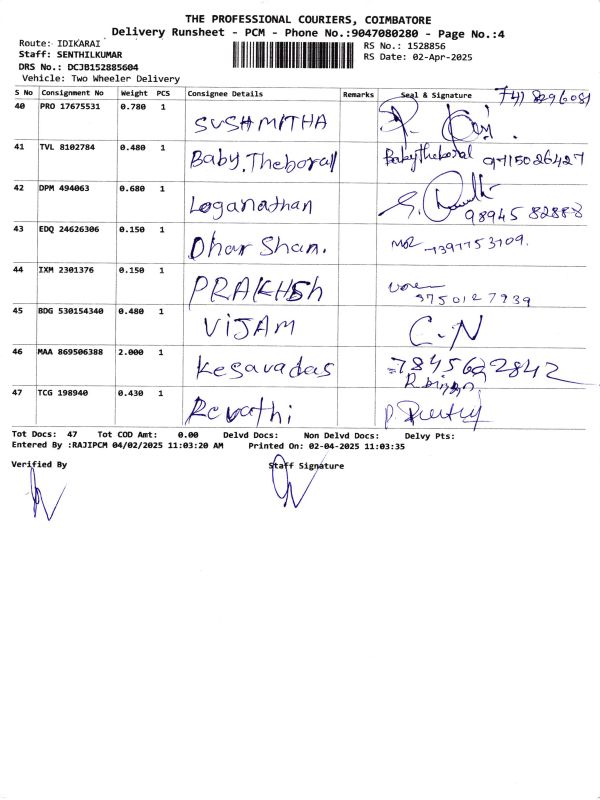 THE PROFESSIONAL COURIERS, COIMBATORE
Delivery Runsheet - PCM - Phone No.:9047080280 - Page No.:4
Route: IDIKARAI
RS No.: 1528856
Staff: SENTHILKUMAR
RS Date: 02-Apr-2025
DRS No.: DCJB152885604
Vehicle: Two Wheeler Delivery
S No Consignment No Weight PCS Consignee Details Remarks Seal & Signature
40 PRO 17675531 0.780 1 SUSHMITHA
41 TVL 8102784 0.480 1 Baby.Theboral Babytheboral 9715026427
42 DPM 494063 0.680 1 Loganathan 98945 82888
43 EDQ 24626306 0.150 1 Dhar Shan.
44 IXM 2301376 0.150 1 PRAKHSh 9750127939
45 BDG 530154340 0.480 1 VIJAM C.N
46 MAA 869506388 2.000 1 Kesavadas 7845692842
47 TCG 198940 0.430 1 Revathi
Tot Docs: 47 Tot COD Amt: 0.00 Delvd Docs: Non Delvd Docs: Delvy Pts:
Entered By :RAJIPCM 04/02/2025 11:03:20 AM Printed On: 02-04-2025 11:03:35
Verified By Staff Signature